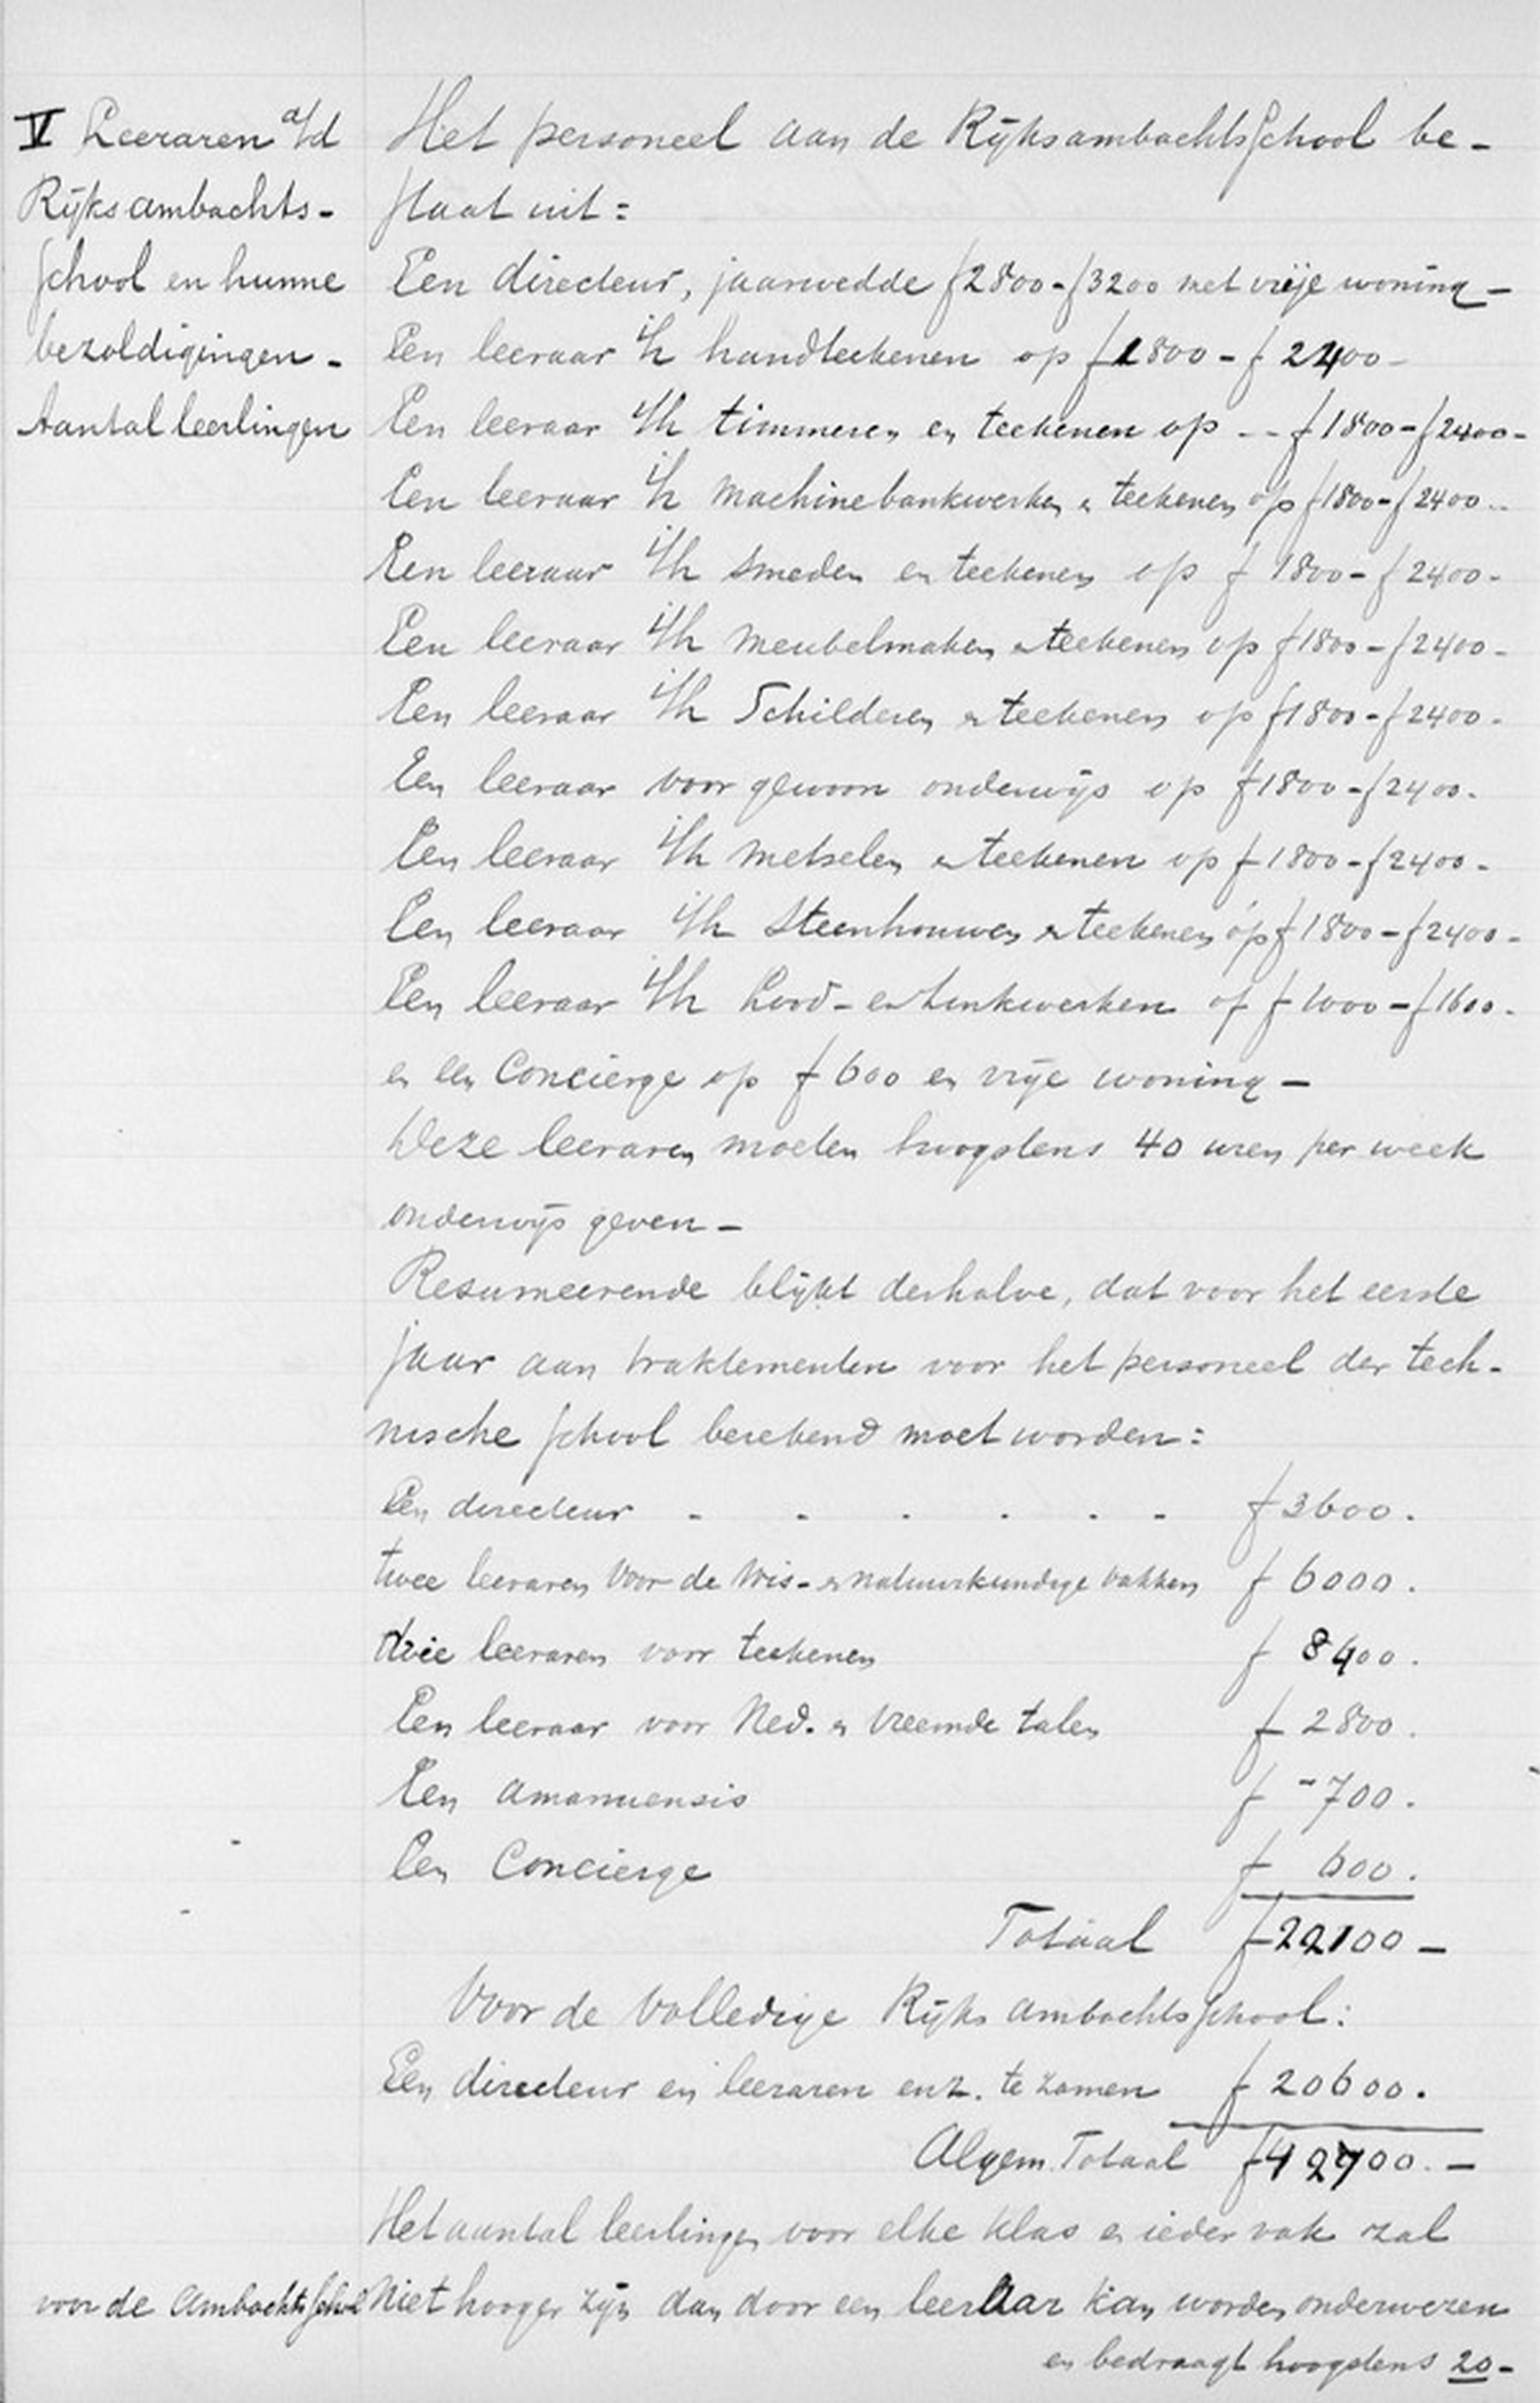 V Leeraren a/d
Rijksambachts-
school en hunne
bezoldigingen -
Aantal leerlingen
Het personeel aan de Rijksambachtsschool be-
staat uit:
Een directeur, jaarwedde f 2800 - f 3200 met vrije woning -
Een leeraar i/h handteekenen op f 1800 - f 2400 -
Een leeraar i/h timmeren en teekenen op -- f 1800 - f 2400 -
Een leeraar i/h machinebankwerken en teekenen op f 1800 - f 2400 --
Een leeraar i/h smeden en teekenen op f 1800 - f 2400 -
Een leeraar i/h meubelmaken en teekenen op f 1800 - f 2400 -
Een leeraar i/h Schilderen en teekenen op f 1800 - f 2400 -
Een leeraar voor gewoon onderwijs op f 1800 - f 2400 -
Een leeraar i/h metselen en teekenen op f 1800 - f 2400 -
Een leeraar i/h Steenhouwen en teekenen op f 1800 - f 2400 -
Een leeraar i/h Lood- en zinkwerken op f 1000 - f 1600 -
en een Concierge op f 600 en vrije woning -
Deze leeraren moeten hoogstens 40 uren per week
onderwijs geven -
Resumeerende blijkt derhalve, dat voor het eerste
jaar aan traktementen voor het personeel der tech-
nische school berekend moet worden:
Een directeur - - . . . - f 3600.
twee leeraren voor de wis- en natuurkundige vakken f 6000.
drie leeraren voor teekenen f 8400.
Een leeraar voor Ned. en vreemde talen f 2800.
Een amanuensis f - 700.
Een Concierge f 600.
Totaal f 22100 -
Voor de volledige Rijks ambachtsschool:
Een directeur en leeraren enz. te zamen f 20600.
Algem. Totaal f 42700. -
Het aantal leerlingen voor elke klas en ieder vak zal
voor de Ambachtsschool niet hooger zijn dan door een leeraar kan worden onderwezen
en bedraagt hoogstens 20 -